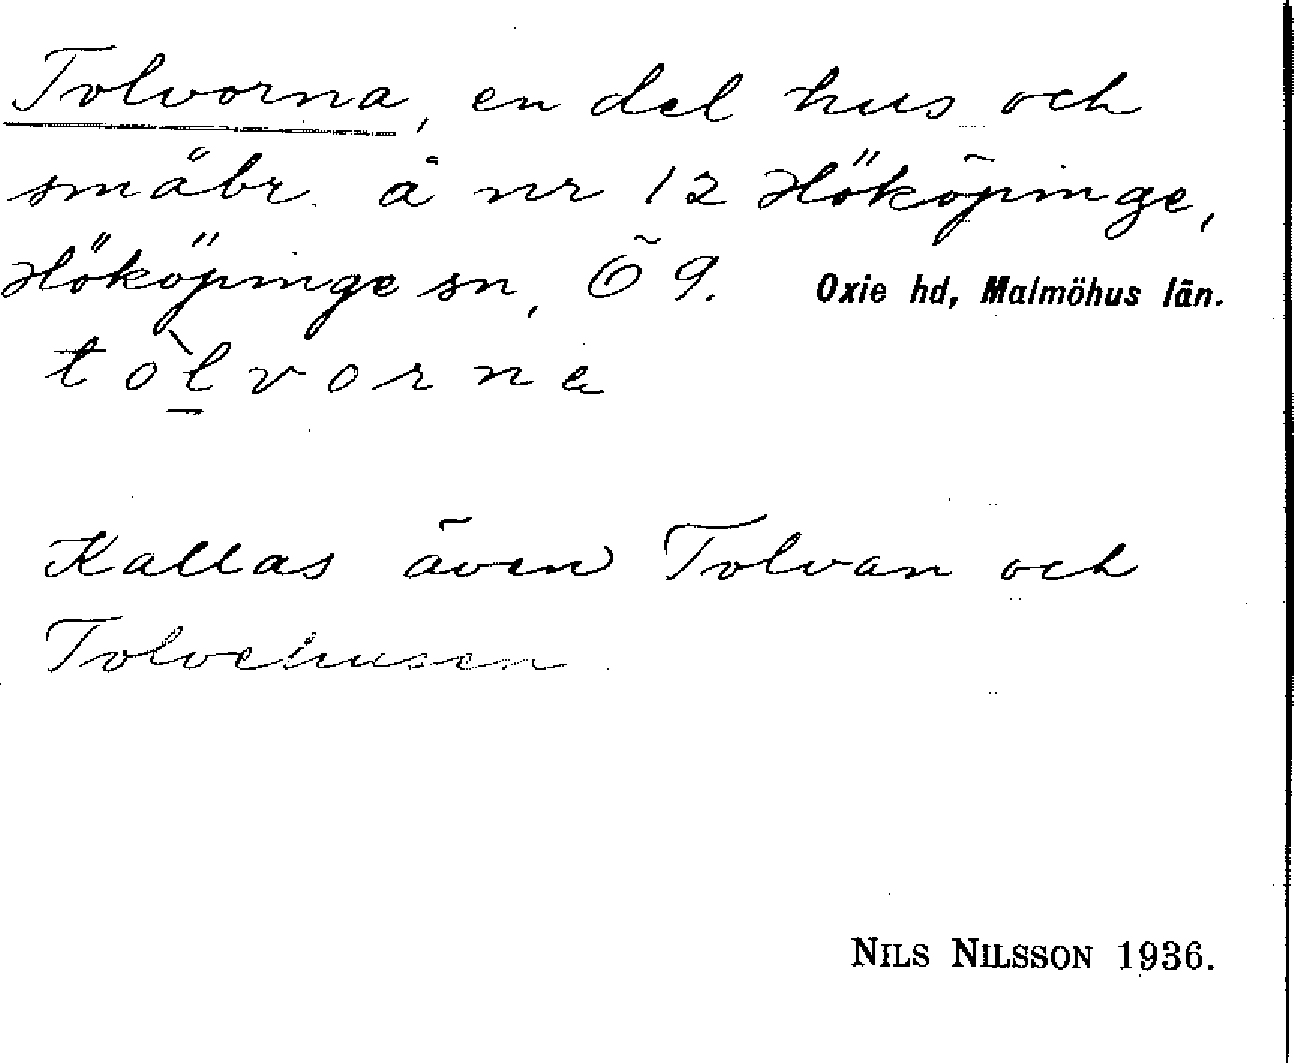 Tolvorna, en del hus och
småbr. å nr 12 Hököpinge,
Hököpinge sn, Ö 9. Oxie hd, Malmöhus län.
tòl̲vorna
Kallas även Tolvan och
Tolvehusen.
NILS NILSSON 1936.